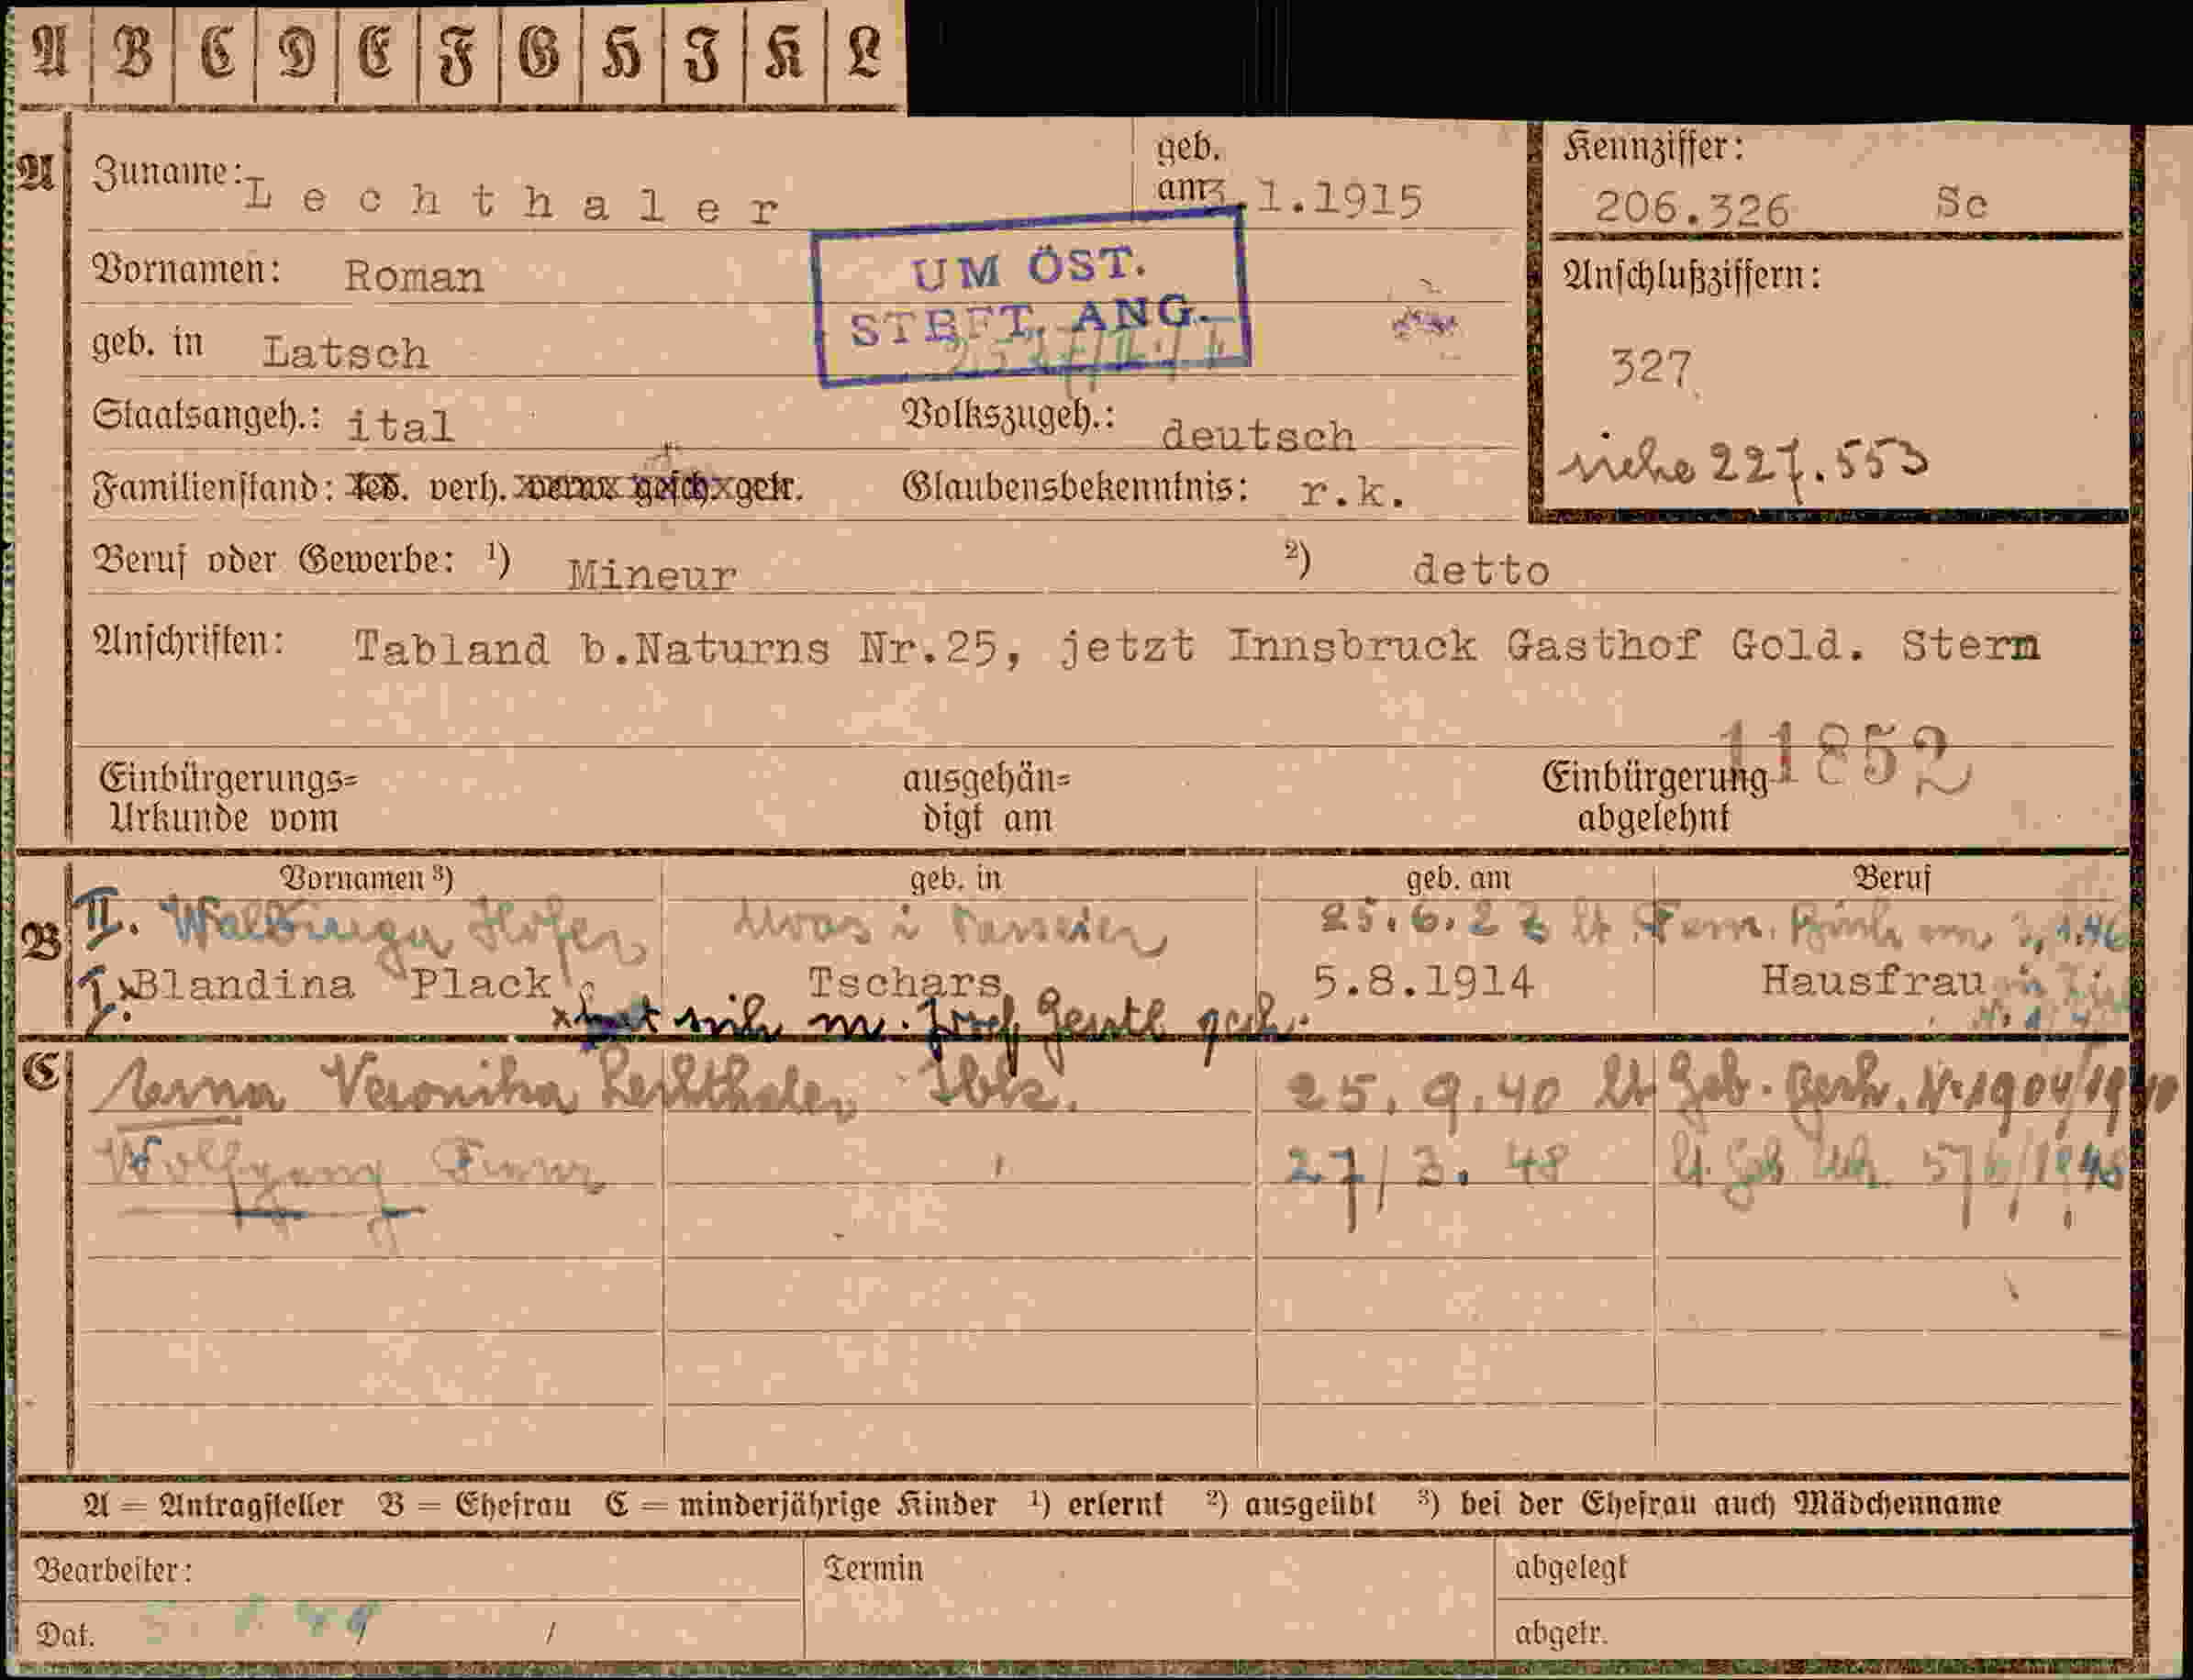 A B C D E F G H J K L
A Zuname: Lechthaler geb. am 3.1.1915 Kennziffer: 206.326 Sc
Vornamen: Roman UM ÖST. STBFT. ANG. Anschlußziffern:
geb. in Latsch 327
Staatsangeh.: ital Volkszugeh.: deutsch siehe 227.553
Familienstand: led. verh. verw. gesch. getr. Glaubensbekenntnis: r.k.
Beruf oder Gewerbe: ¹) Mineur ²) detto
Anschriften: Tabland b.Naturns Nr.25, jetzt Innsbruck Gasthof Gold. Stern
11852
Einbürgerungs= Urkunde vom ausgehän= digt am Einbürgerung abgelehnt
Vornamen ³) geb. in geb. am Beruf
B II. Walburga Hofer Moos i Passeier 25.6.22 lt. Fam. Buch
I. x Blandina Plack Tschars 5.8.1914 Hausfrau
x hat sich m. Josef Gerstl
C Erna Veronika Lechthaler Ibk. 25.9.40 lt Geb. Besch. Nr 1904/1940
Wolfgang Franz 27/3.48 lt. Geb Urk. 576/1948
A = Antragsteller B = Ehefrau C = minderjährige Kinder ¹) erlernt ²) ausgeübt ³) bei der Ehefrau auch Mädchenname
Bearbeiter: Termin abgelegt
Dat. abgetr.